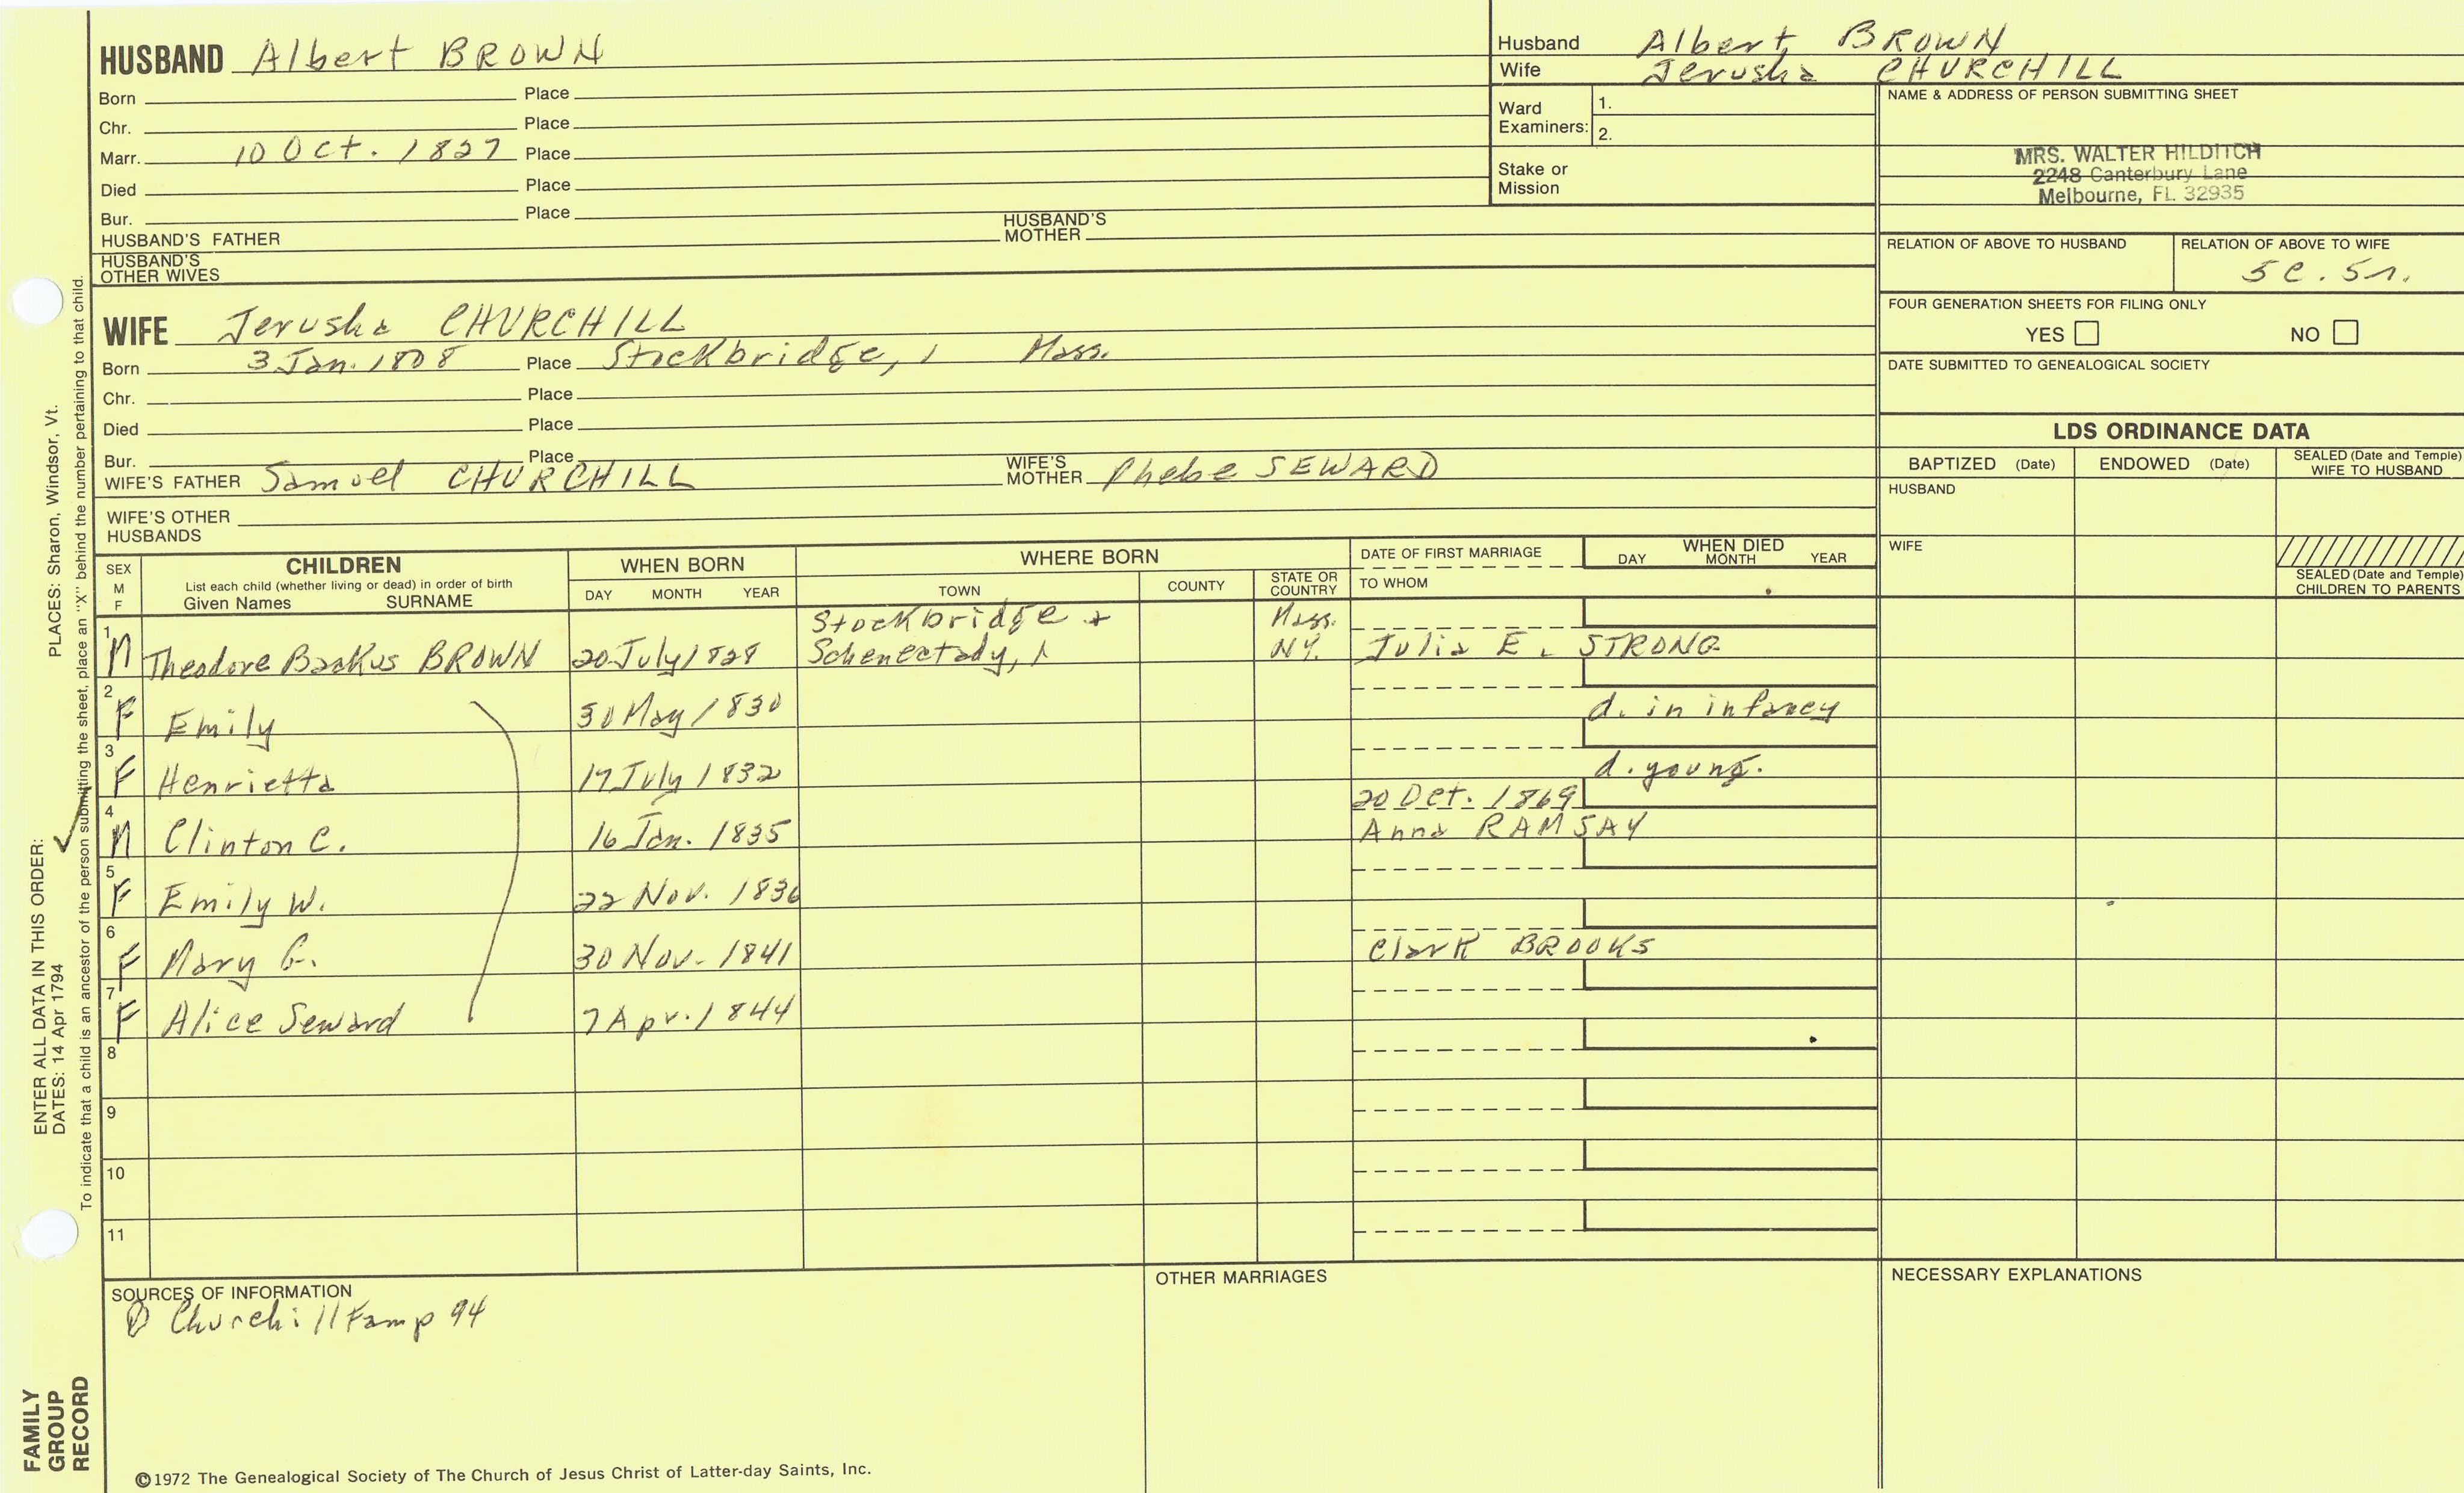 HUSBAND Albert BROWN
Born Place
Chr. Place
Marr. 10 Oct. 1827 Place
Died Place
Bur. Place
HUSBAND'S FATHER HUSBAND'S MOTHER
HUSBAND'S OTHER WIVES
Husband Albert BROWN
Wife Jerusha CHURCHILL
Ward Examiners: 1.
2.
Stake or Mission
NAME & ADDRESS OF PERSON SUBMITTING SHEET
MRS. WALTER HILDITCH
2248 Canterbury Lane
Melbourne, FL 32935
RELATION OF ABOVE TO HUSBAND
RELATION OF ABOVE TO WIFE
FOUR GENERATION SHEETS FOR FILING ONLY
YES NO
DATE SUBMITTED TO GENEALOGICAL SOCIETY
WIFE Jerusha CHURCHILL
Born 3 Jan. 1808 Place Stockbridge, Mass.
Chr. Place
Died Place
Bur. Place
WIFE'S FATHER Samuel CHURCHILL WIFE'S MOTHER Phebe SEWARD
WIFE'S OTHER HUSBANDS
LDS ORDINANCE DATA
BAPTIZED (Date) ENDOWED (Date) SEALED (Date and Temple) WIFE TO HUSBAND
HUSBAND
WIFE
SEALED (Date and Temple) CHILDREN TO PARENTS
SEX M F
CHILDREN
List each child (whether living or dead) in order of birth
Given Names SURNAME
WHEN BORN
DAY MONTH YEAR
WHERE BORN
TOWN COUNTY STATE OR COUNTRY
DATE OF FIRST MARRIAGE
TO WHOM
WHEN DIED
DAY MONTH YEAR
Stockbridge + Mass.
1 M Theodore Backus BROWN 20 July 1828 Schenectady, NY. Julia E. STRONG
2 F Emily 30 May 1830 d. in infancy
3 F Henrietta 17 July 1832 d. young.
20 Oct. 1869
4 M Clinton C. 16 Jan. 1835 Anna RAMSAY
5 F Emily W. 22 Nov. 1836
6 F Mary G. 30 Nov. 1841 Clark BROOKS
7 F Alice Seward 7 Apr. 1844
8
9
10
11
SOURCES OF INFORMATION
Churchill Fam p 94
OTHER MARRIAGES
NECESSARY EXPLANATIONS
©1972 The Genealogical Society of The Church of Jesus Christ of Latter-day Saints, Inc.
FAMILY GROUP RECORD
ENTER ALL DATA IN THIS ORDER:
DATES: 14 Apr 1794 PLACES: Sharon, Windsor, Vt.
To indicate that a child is an ancestor of the person submitting the sheet, place an "X" behind the number pertaining to that child.